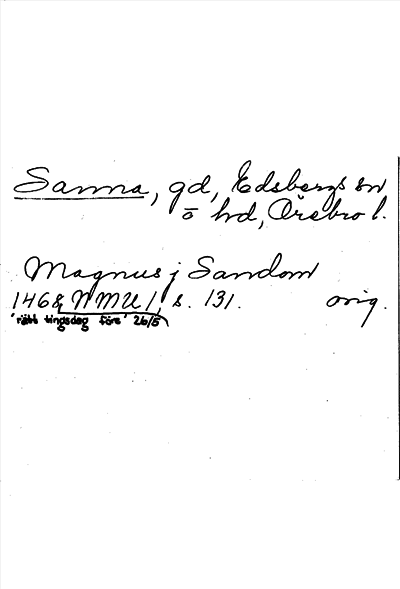 Sanna, gd, Edsbergs sn
o hd, Örebro l.
Magnus j Sandom
1468 NMU 1, s. 131. orig.
'rätt tingsdag före' 26/5